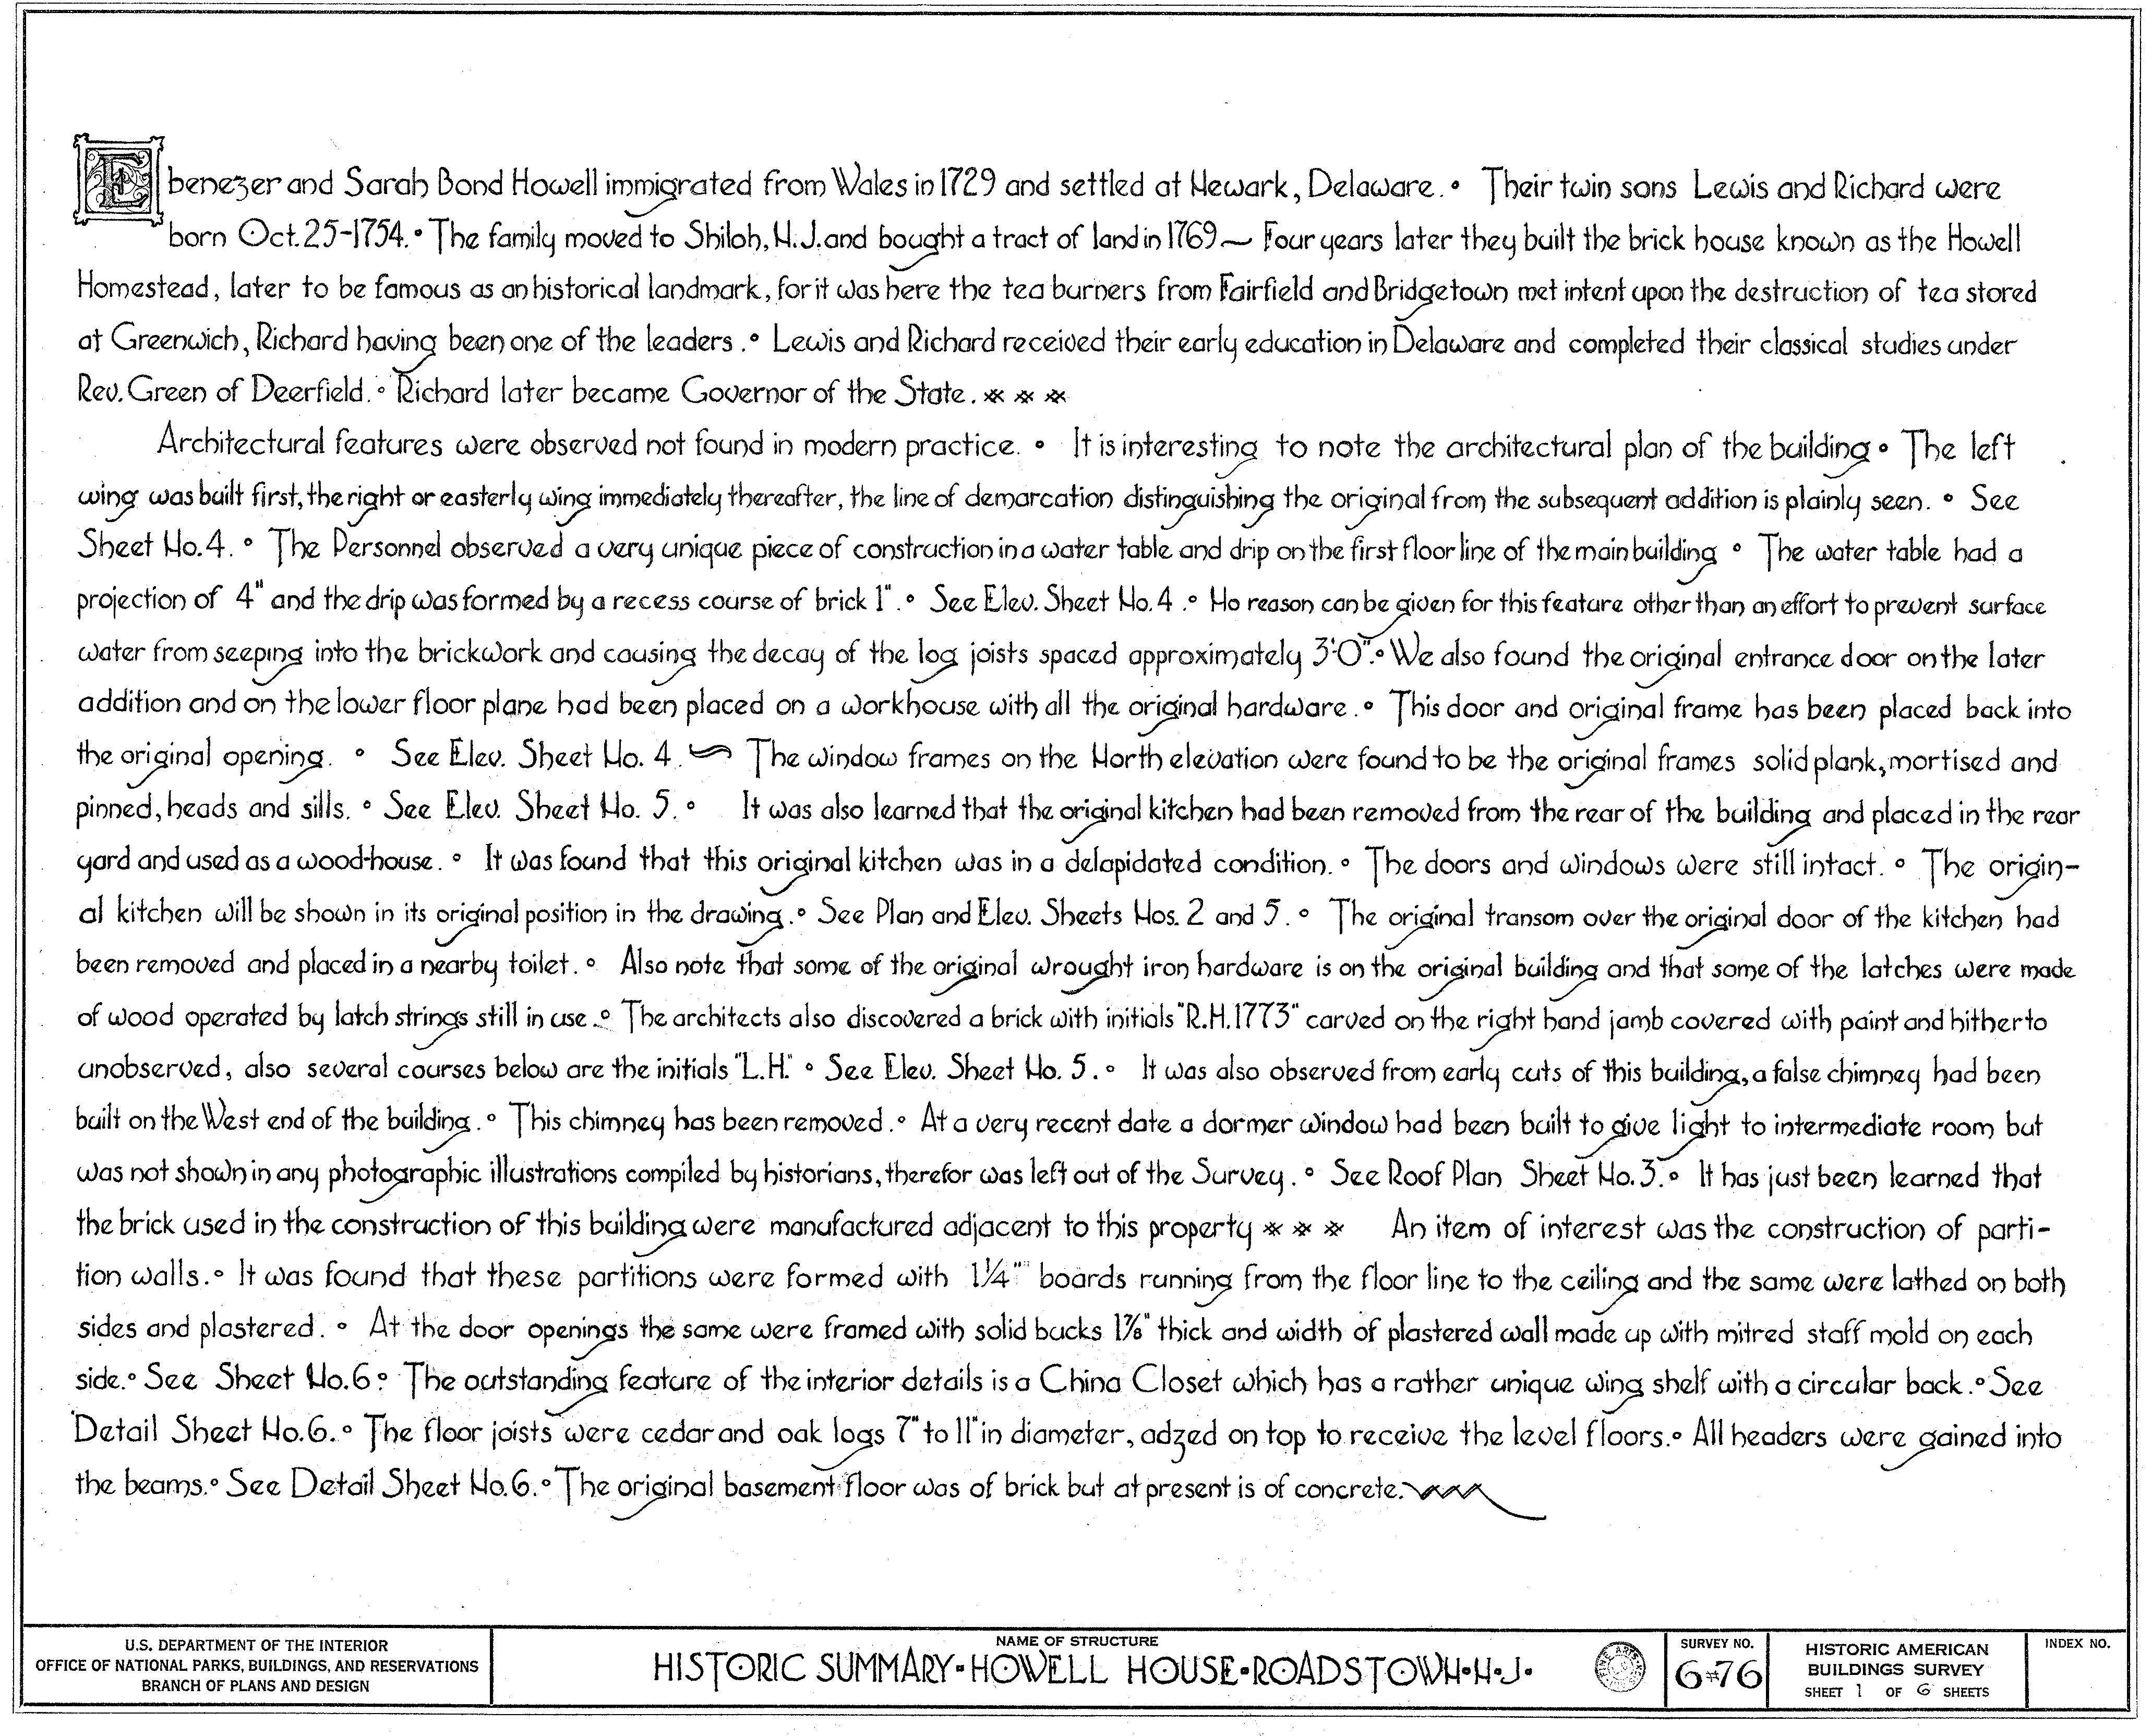 Ebenezer and Sarah Bond Howell immigrated from Wales in 1729 and settled at Newark, Delaware. ∘ Their twin sons Lewis and Richard were
born Oct. 25-1754. ∘ The family moved to Shiloh, N.J. and bought a tract of land in 1769 ~ Four years later they built the brick house known as the Howell
Homestead, later to be famous as an historical landmark, for it was here the tea burners from Fairfield and Bridgetown met intent upon the destruction of tea stored
at Greenwich, Richard having been one of the leaders. ∘ Lewis and Richard received their early education in Delaware and completed their classical studies under
Rev. Green of Deerfield. ∘ Richard later became Governor of the State. * * *
Architectural features were observed not found in modern practice. ∘ It is interesting to note the architectural plan of the building ∘ The left
wing was built first, the right or easterly wing immediately thereafter, the line of demarcation distinguishing the original from the subsequent addition is plainly seen. ∘ See
Sheet No. 4. ∘ The Personnel observed a very unique piece of construction in a water table and drip on the first floor line of the main building ∘ The water table had a
projection of 4" and the drip was formed by a recess course of brick 1". ∘ See Elev. Sheet No. 4. ∘ No reason can be given for this feature other than an effort to prevent surface
water from seeping into the brickwork and causing the decay of the log joists spaced approximately 3'-0". ∘ We also found the original entrance door on the later
addition and on the lower floor plane had been placed on a workhouse with all the original hardware. ∘ This door and original frame has been placed back into
the original opening. ∘ See Elev. Sheet No. 4. ~ The window frames on the North elevation were found to be the original frames solid plank, mortised and
pinned, heads and sills. ∘ See Elev. Sheet No. 5. ∘ It was also learned that the original kitchen had been removed from the rear of the building and placed in the rear
yard and used as a wood-house. ∘ It was found that this original kitchen was in a delapidated condition. ∘ The doors and windows were still intact. ∘ The origin-
al kitchen will be shown in its original position in the drawing. ∘ See Plan and Elev. Sheets Nos. 2 and 5. ∘ The original transom over the original door of the kitchen had
been removed and placed in a nearby toilet. ∘ Also note that some of the original wrought iron hardware is on the original building and that some of the latches were made
of wood operated by latch strings still in use. ∘ The architects also discovered a brick with initials "R.H. 1773" carved on the right hand jamb covered with paint and hitherto
unobserved, also several courses below are the initials "L.H." ∘ See Elev. Sheet No. 5. ∘ It was also observed from early cuts of this building, a false chimney had been
built on the West end of the building. ∘ This chimney has been removed. ∘ At a very recent date a dormer window had been built to give light to intermediate room but
was not shown in any photographic illustrations compiled by historians, therefor was left out of the Survey. ∘ See Roof Plan Sheet No. 3. ∘ It has just been learned that
the brick used in the construction of this building were manufactured adjacent to this property * * * An item of interest was the construction of parti-
tion walls. ∘ It was found that these partitions were formed with 1¼" boards running from the floor line to the ceiling and the same were lathed on both
sides and plastered. ∘ At the door openings the same were framed with solid bucks 1⅞" thick and width of plastered wall made up with mitred staff mold on each
side. ∘ See Sheet No. 6 ∘ The outstanding feature of the interior details is a China Closet which has a rather unique wing shelf with a circular back. ∘ See
Detail Sheet No. 6. ∘ The floor joists were cedar and oak logs 7" to 11" in diameter, adzed on top to receive the level floors. ∘ All headers were gained into
the beams. ∘ See Detail Sheet No. 6. ∘ The original basement floor was of brick but at present is of concrete.
U.S. DEPARTMENT OF THE INTERIOR
OFFICE OF NATIONAL PARKS, BUILDINGS, AND RESERVATIONS
BRANCH OF PLANS AND DESIGN
NAME OF STRUCTURE
HISTORIC SUMMARY-HOWELL HOUSE-ROADSTOWN·N·J·
SURVEY NO.
6-76
HISTORIC AMERICAN
BUILDINGS SURVEY
SHEET 1 OF 6 SHEETS
INDEX NO.